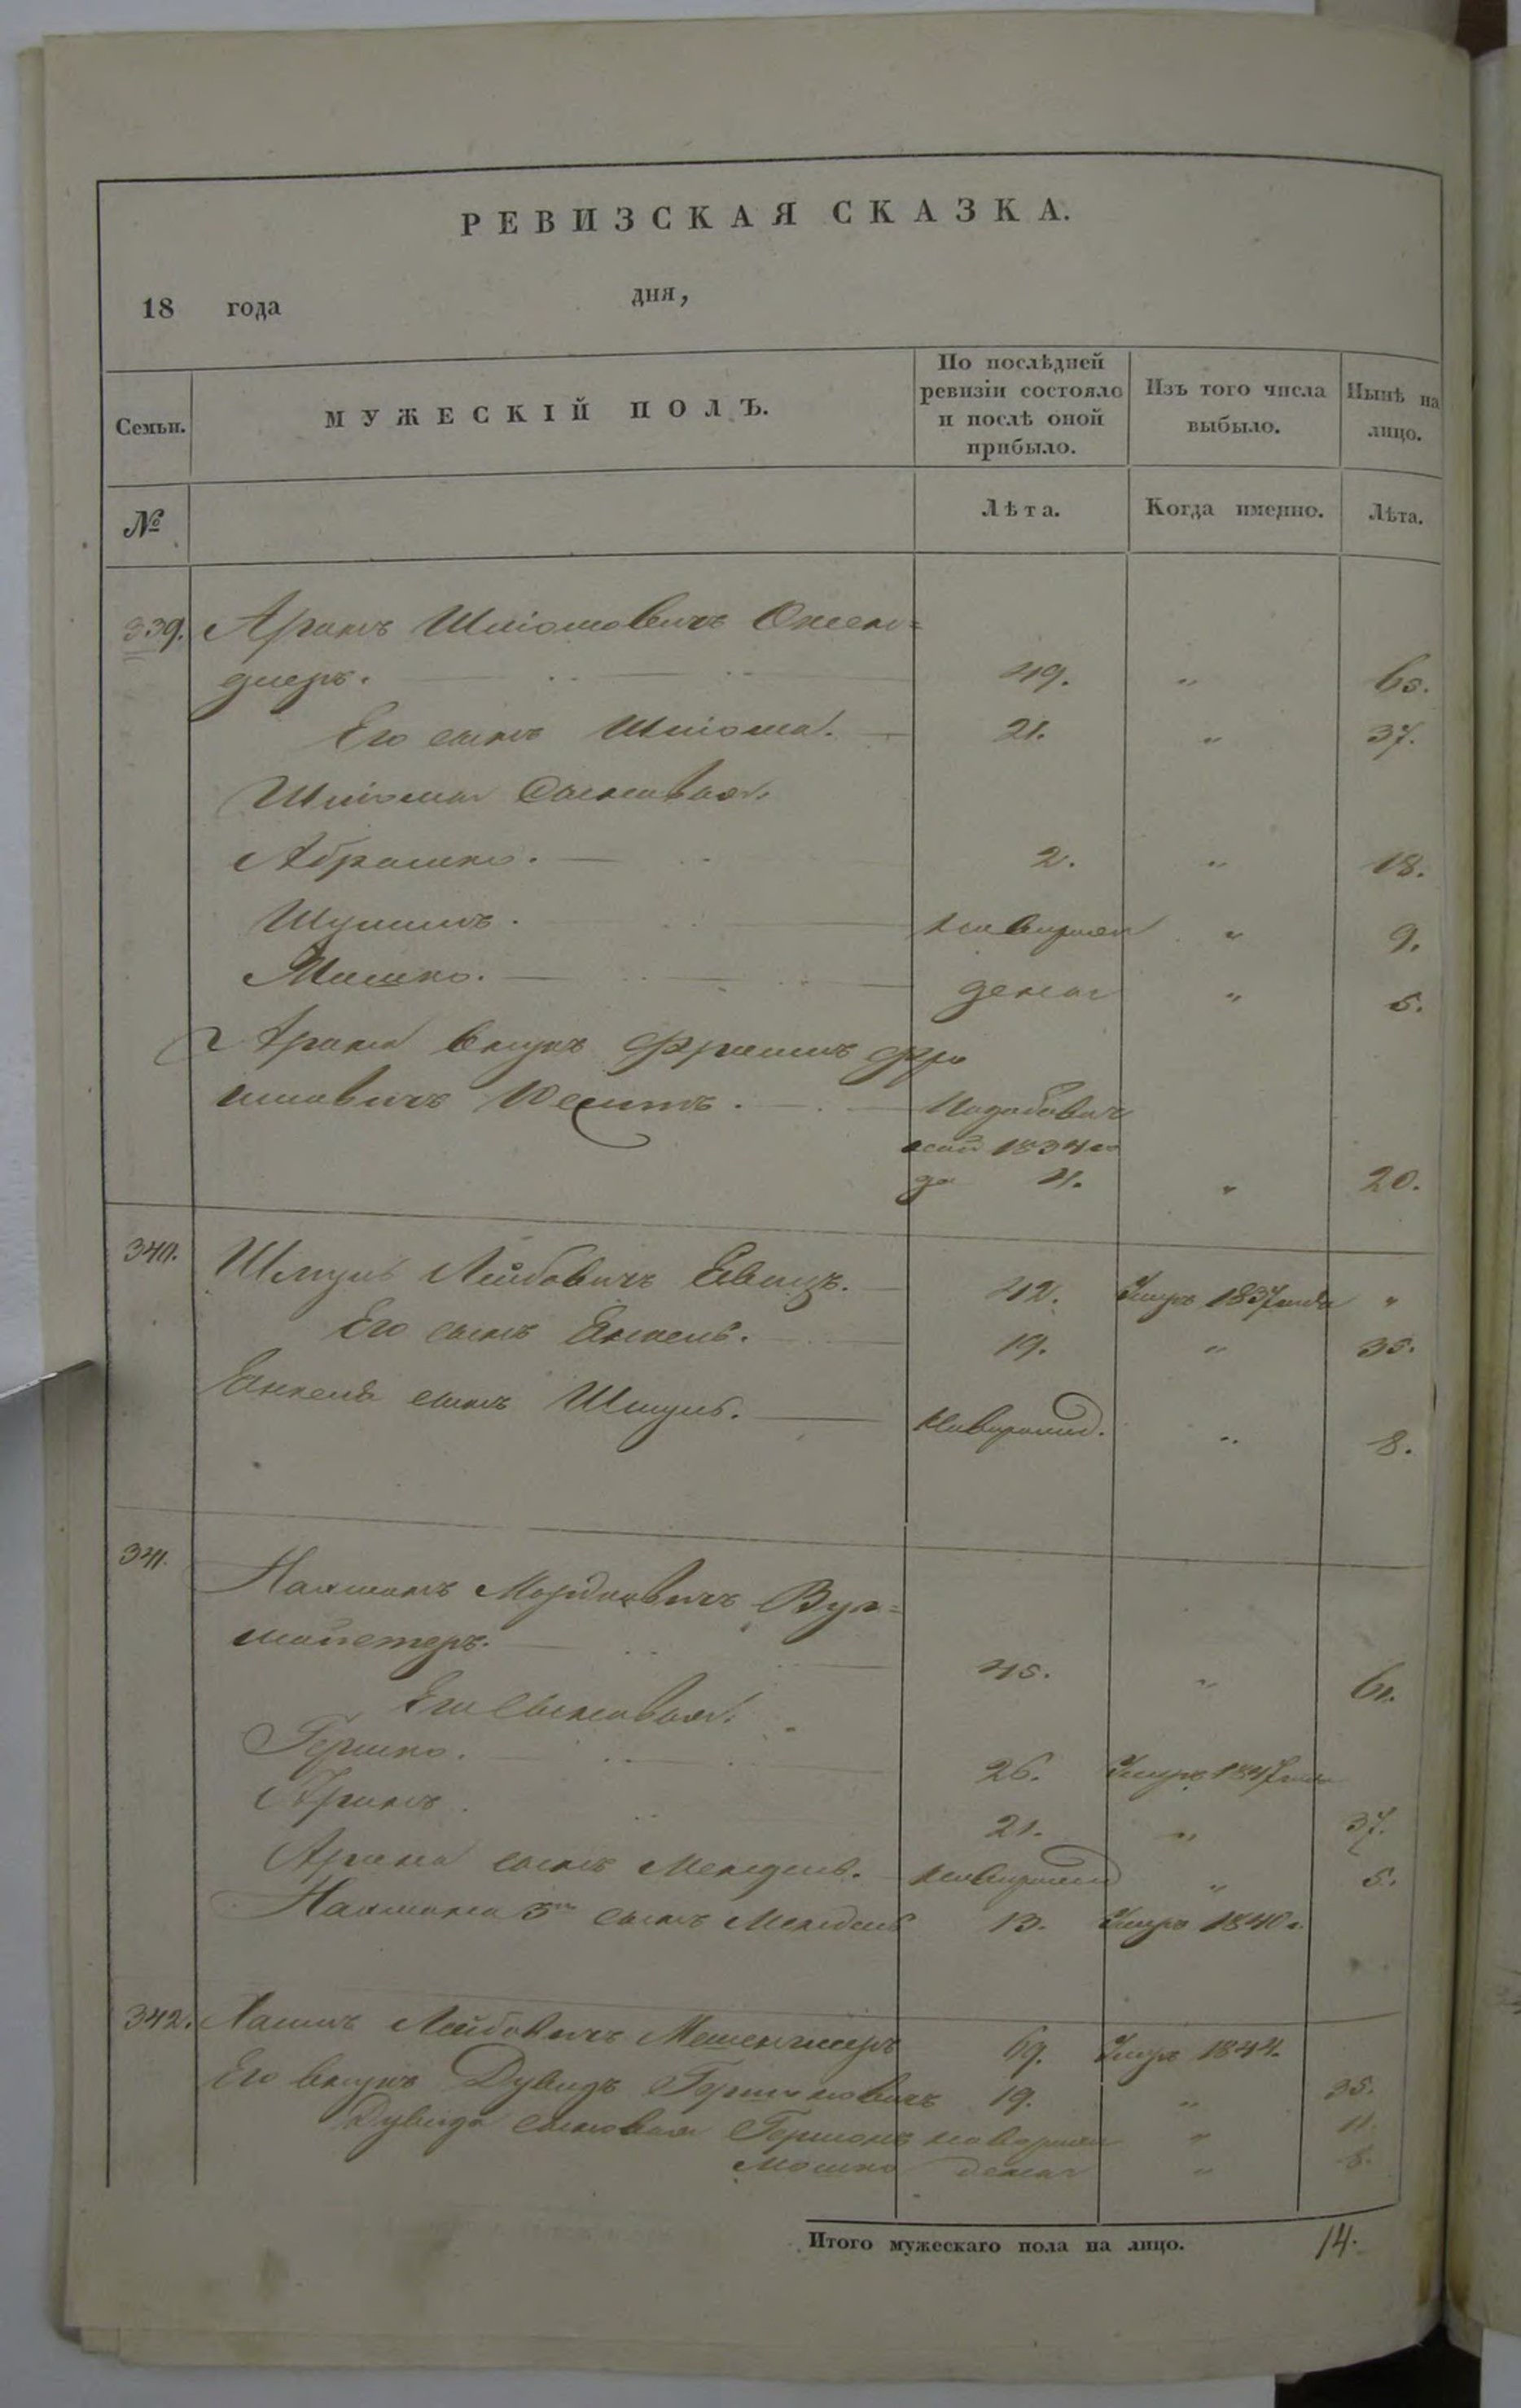 РЕВИЗСКАЯ СКАЗКА.
18 года дня,
Семьи.
МУЖЕСКІЙ ПОЛЪ.
По послѣдней
ревизіи состояло
и послѣ оной
прибыло.
Изъ того числа
выбыло.
Нынѣ на
лицо.
№
Лѣта.
Когда именно.
Лѣта.
339. Аронъ Шліомовичъ
49. " 65.
Его сынъ Шліома. 21. " 37.
Шліомы Сыновья:
Абрашко. 2. " 18.
Шулимъ. новорож " 9.
Мошко. денны " 5.
Арона внукъ Фроимъ Фро
имовичъ
1834
до 4. " 20.
340. Шмуль Лейбовичъ 42. Умеръ 1837 года "
Его сынъ Янкель. 19. " 35.
Янкеля сынъ Шмуль. новорожд. " 8.
341. Нахманъ Мордковичъ Вул=
мейстеръ. 45. " 61.
Его Сыновья:
Гершко. 26. Умеръ 1847 года
Аронъ. 21. " 37.
Арона сынъ Мендель. новорожд " 5.
Нахмана 3й сынъ Мендель 13. Умеръ 1840 г.
342. Хаимъ Лейбовичъ 69. Умеръ 1844.
Его внукъ Дувидъ Гершковичъ 19. " 35.
Дувида сыновья Гершонъ новорож " 11.
Мошко денны " 8.
Итого мужескаго пола на лицо. 14.